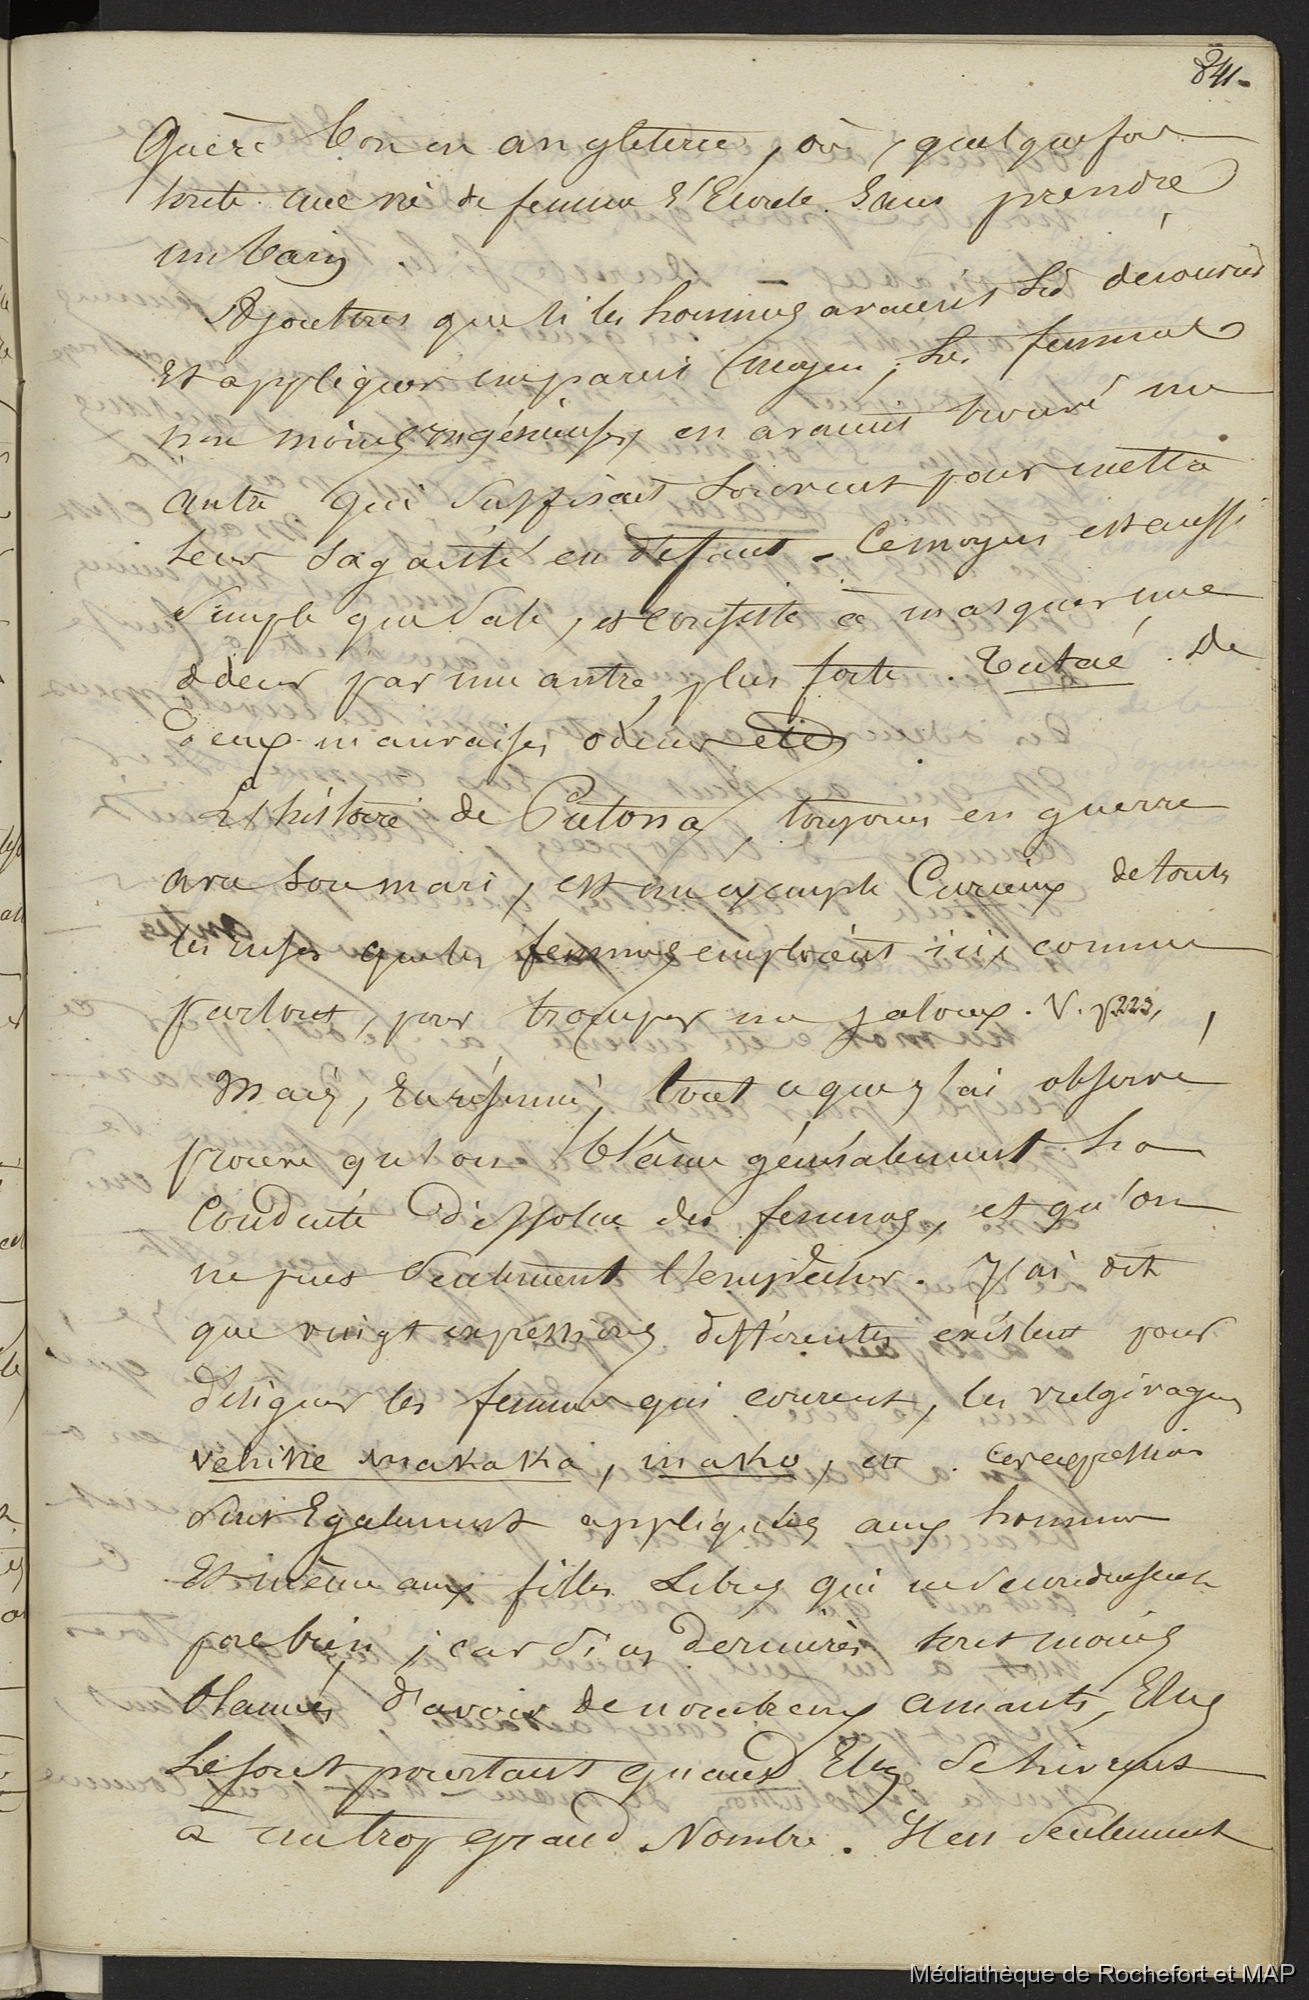 841.
Guère bon en angleterre, où, quelquefois
toute une vie de femme s'Ecoule sans prendre
un bain.
Ajoutons que si les hommes avaient su découvrir
Et appliquer un pareil moyen, les femmes
non moins ingénieuses, en avaient trouvé un
autre qui suffisait souvent pour mettre
leur sagacité en défaut - Ce moyen est aussi
simple que sale, et consiste à masquer une
odeur par une autre plus forte. Tutaé. De
deux mauvaises odeurs
L'histoire de Putona, toujours en guerre
avec son mari, est un exemple Curieux de toutes
les ruses que les femmes emploient ici comme
partout, pour tromper un jaloux. V. p 223,
Mais, En résumé, tout ce que j'ai observé
prouve qu'on blâme généralement la
Conduite dissolue des femmes, et qu'on
ne peut seulement l'empêcher. J'ai dit
que vingt expressions différentes existent pour
désigner les femmes qui courent, les vulgivagues
vehine makaka, mako, etc. Ces expressions
sont Egalement appliquées aux hommes
Et même aux filles Libres qui se conduisent
pas bien, car si ces dernières sont moins
blamées d'avoir de nombreux amants, Elles
Le sont pourtant quand Elles se livrent
à un trop grand Nombre. Il en Seulement
Médiathèque de Rochefort et MAP